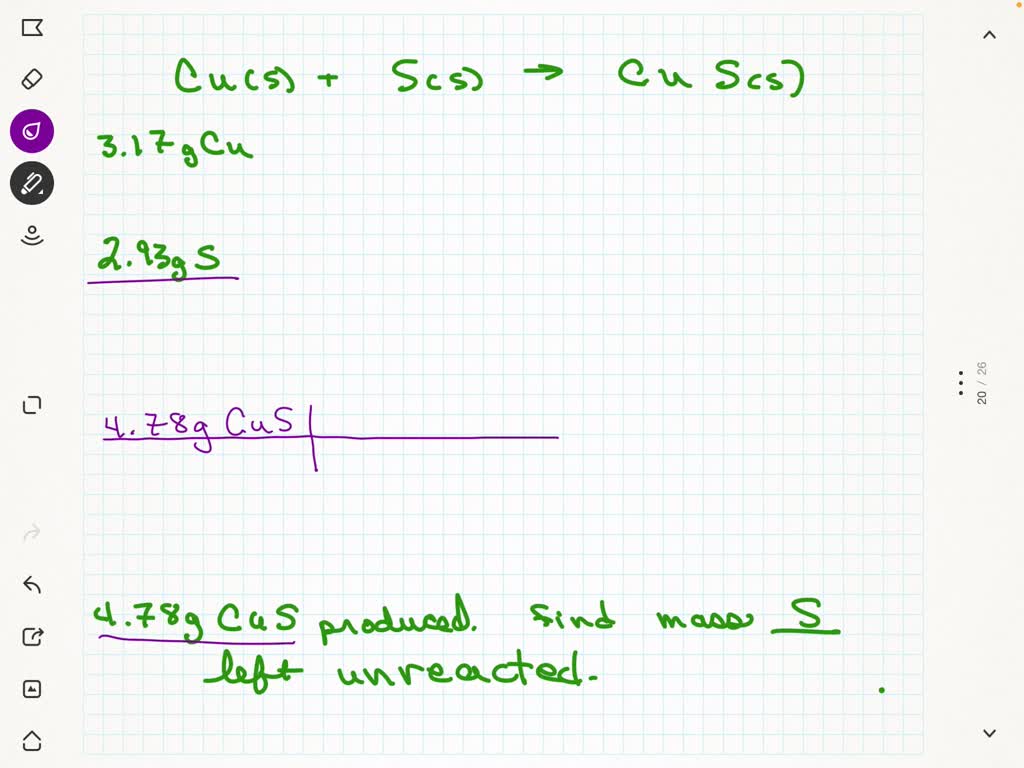 Cu(s) + S(s) → CuS(s)
3.17g Cu
2.93g S
4.78g CuS
4.78g CuS produced. find mass S
left unreacted.
20 / 26